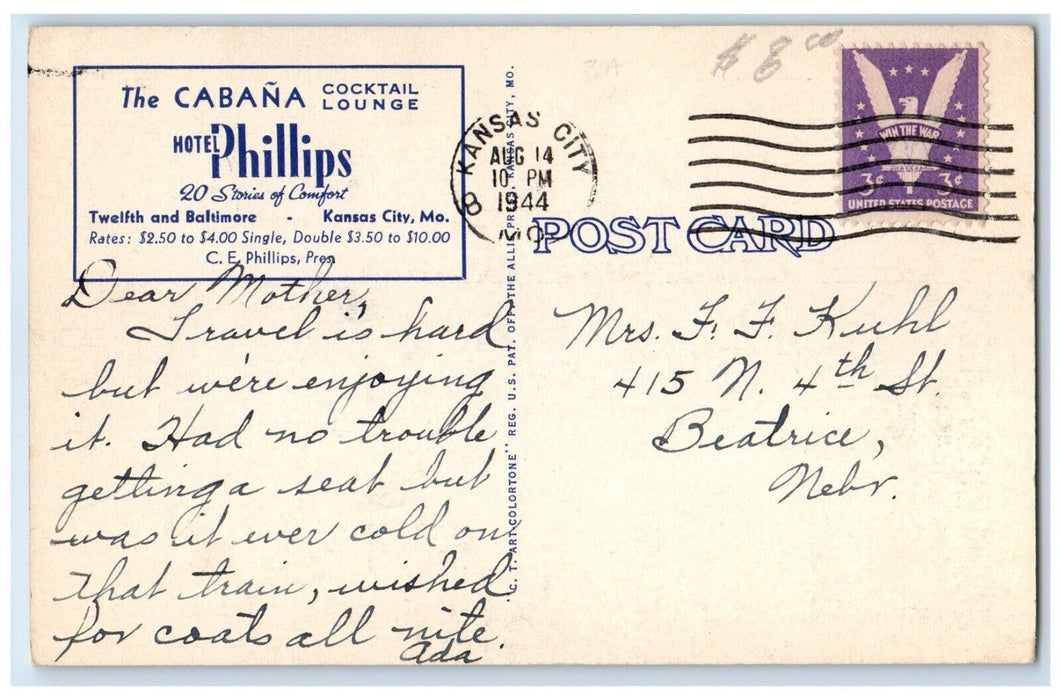 The CABAÑA COCKTAIL LOUNGE
HOTEL Phillips
20 Stories of Comfort
Twelfth and Baltimore - Kansas City, Mo.
Rates: $2.50 to $4.00 Single, Double $3.50 to $10.00
C. E. Phillips, Pres.
Dear Mother,
Travel is hard
but we're enjoying
it. Had no trouble
getting a seat but
was it ever cold on
that train, wished
for coats all nite.
Ada
"C. T. ART-COLORTONE" REG. U.S. PAT. OFF. THE ALLIS PRESS, KANSAS CITY, MO.
KANSAS CITY
8
AUG 14
10 PM
1944
MO.
$8.00
WIN THE WAR
3¢ 3¢
UNITED STATES POSTAGE
POST CARD
Mrs. F. F. Kuhl
415 N. 4th St.
Beatrice,
Nebr.